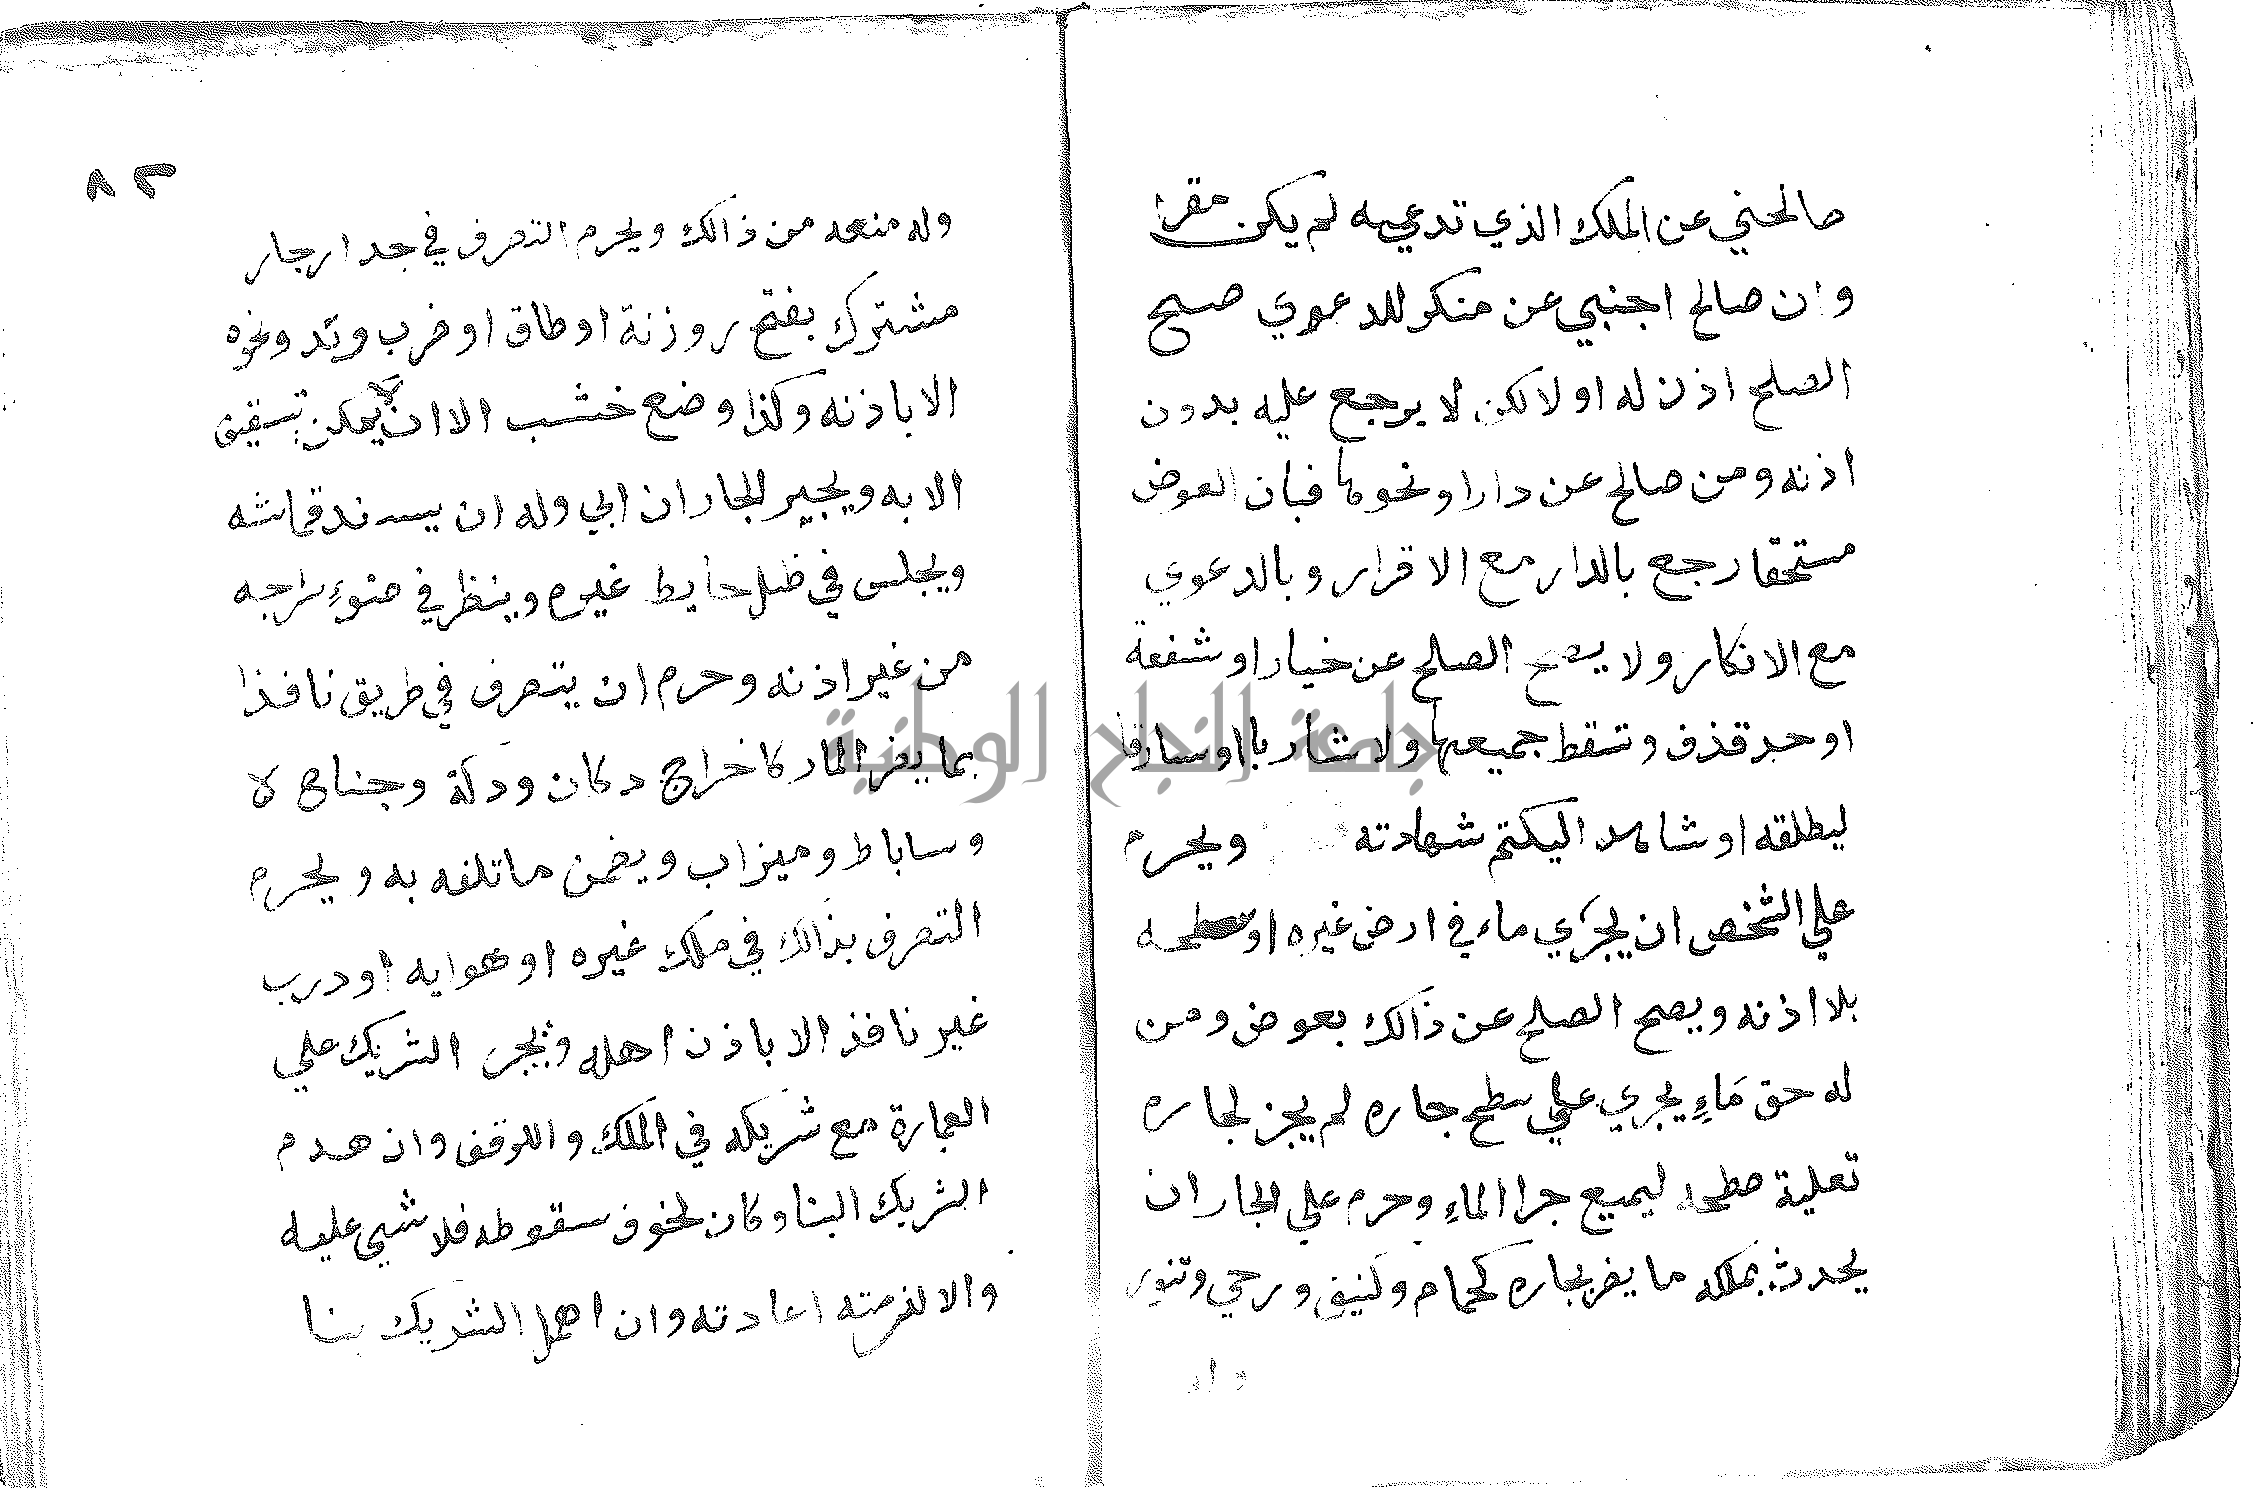 صالحني عن الملك الذي تدعيه لم يكن مقرا
وان صالح اجنبي عن منكر للدعوي صح
الصلح اذن له اولا لكن لا يرجع عليه بدون
اذنه ومن صالح عن دار او نحوها فبان العوض
مستحقا رجع بالدار مع الاقرار وبالدعوي
مع الانكار ولا يصح الصلح عن خيار او شفعة
او حد قذف وتسقط جميعها ولا شاربا او سارقا
ليطلقه او شاهدا ليكتم شهادته ويحرم
علي الشخص ان يجري ماء في ارض غيره او سطحه
بلا اذنه ويصح الصلح عن ذالك بعوض ومن
له حق ماء يجري علي سطح جاره لم يجز لجاره
تعلية سطحه ليميع جرا الماء وحرم علي الجار ان
يحدث بملكه ما يضر بجاره كحمام وكنيف ورحي وتنور
وله
٨٢
وله منعه من ذالك ويحرم التصرف في جدار جار
مشترك بفتح روزنة او طاق او ضرب وتد ونحوه
الا باذنه وكذا وضع خشب الا ان لا يمكن تسقيف
الا به ويجبر الجار ان ابي وله ان يسند قماشه
ويجلس في ظل حايط غيره وينظر في ضوء سراجه
من غير اذنه وحرم ان يتصرف في طريق نافذا
بما يضر المار كاخراج دكان ودكة وجناح لا
وساباط وميزاب ويضمن ما تلفه به ويحرم
التصرف بذالك في ملك غيره او هوايه او درب
غير نافذ الا باذن اهله ويجبر الشريك علي
العمارة مع شريكه في الملك والوقف وان هدم
الشريك البنا وكان لخوف سقوطه فلا شي عليه
والا لزمته اعادته وان اهمل الشريك بنا
جامعة النجاح الوطنية